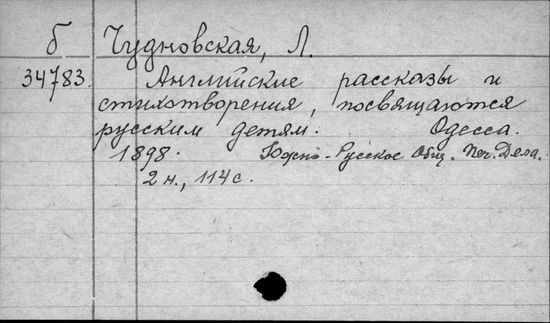 б Чудновская, Л.
34783. Английские рассказы и
стихотворения, посвящаются
русским детям. Одесса.
1898. Южно-Русское Общ. Печ. Дела.
2 н., 114 с.